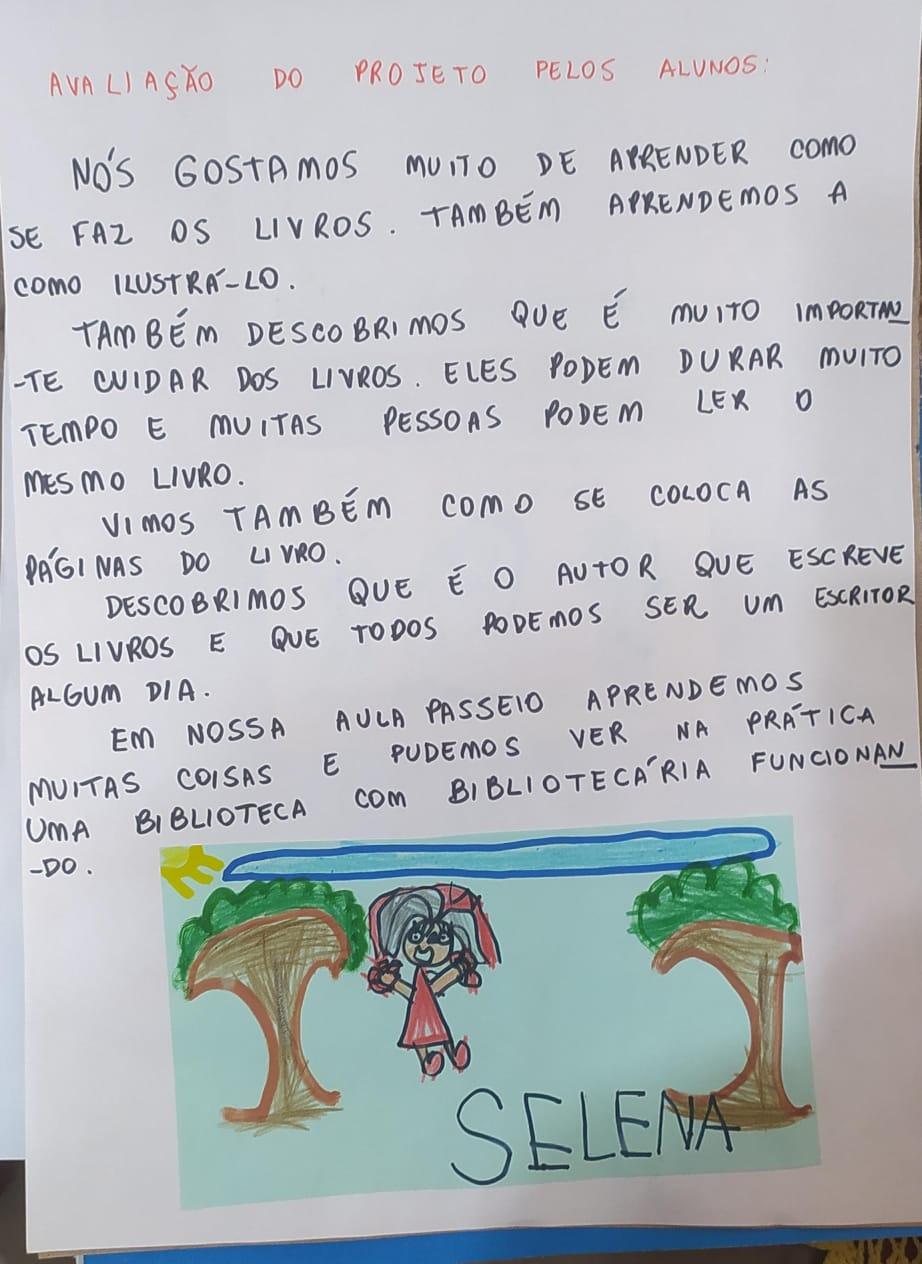 AVALIAÇÃO DO PROJETO PELOS ALUNOS:
NÓS GOSTAMOS MUITO DE APRENDER COMO
SE FAZ OS LIVROS. TAMBÉM APRENDEMOS A
COMO ILUSTRÁ-LO.
TAMBÉM DESCOBRIMOS QUE É MUITO IMPORTAN
-TE CUIDAR DOS LIVROS. ELES PODEM DURAR MUITO
TEMPO E MUITAS PESSOAS PODEM LER O
MESMO LIVRO.
VIMOS TAMBÉM COMO SE COLOCA AS
PÁGINAS DO LIVRO.
DESCOBRIMOS QUE É O AUTOR QUE ESCREVE
OS LIVROS E QUE TODOS PODEMOS SER UM ESCRITOR
ALGUM DIA.
EM NOSSA AULA PASSEIO APRENDEMOS
MUITAS COISAS E PUDEMOS VER NA PRÁTICA
UMA BIBLIOTECA COM BIBLIOTECÁRIA FUNCIONAN
-DO.
SELENA